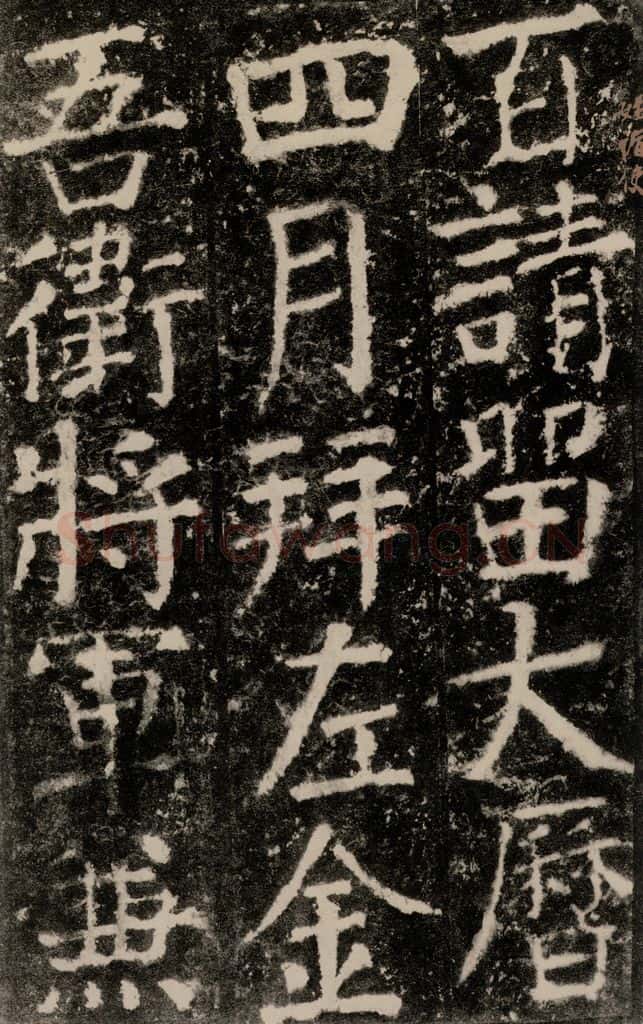 百請留大曆
四月拜左金
吾衛將軍兼
Shufawang.CN